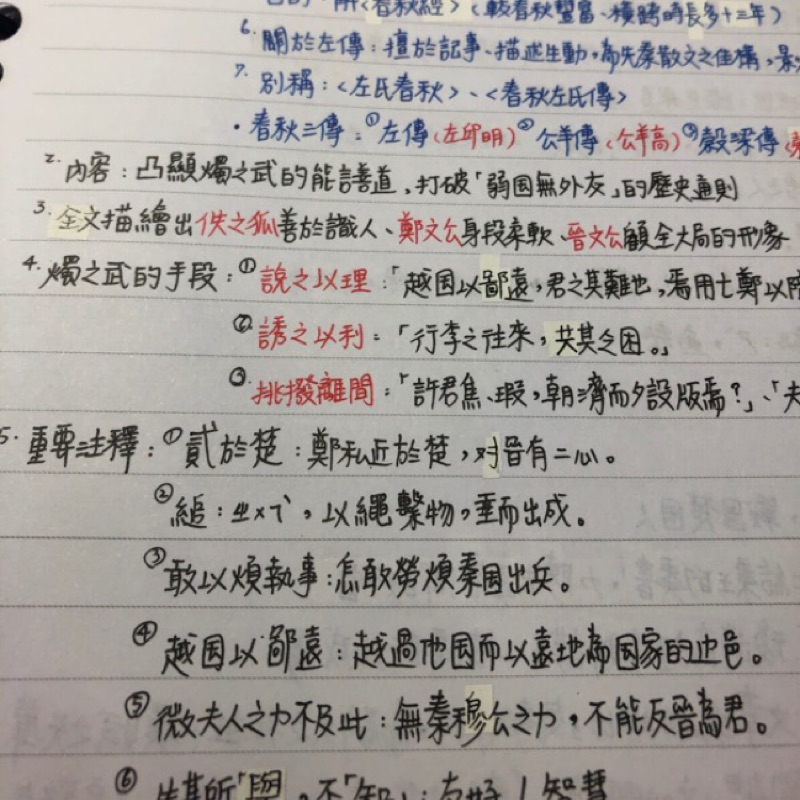 解《春秋經》(較春秋豐富、橫跨時長多十三年)
6. 關於左傳：擅於記事、描述生動，為先秦散文之佳構，
7. 別稱：〈左氏春秋〉、〈春秋左氏傳〉
・春秋三傳：①左傳(左邱明)②公羊傳(公羊高)③穀梁傳(
2. 內容：凸顯燭之武的能言善道，打破「弱國無外交」的歷史通則
3. 全文描繪出佚之狐善於識人、鄭文公身段柔軟、晉文公顧全大局的形象
4. 燭之武的手段：①說之以理：「越国以鄙遠，君之其難也，焉用亡鄭以陪
②誘之以利：「行李之往來，共其乏困。」
③挑撥離間：「許君焦、瑕，朝濟而夕設版焉？」、「夫
5. 重要注釋：①貳於楚：鄭私近於楚，对晉有二心。
②縋：ㄓㄨㄟˋ，以繩繫物，垂而出成。
③敢以煩執事：怎敢勞煩秦国出兵。
④越国以鄙遠：越過他国而以遠地為国家的边邑。
⑤微夫人之力不及此：無秦穆公之力，不能反晉為君。
⑥失其所「與」，不「知」：友好｜智慧